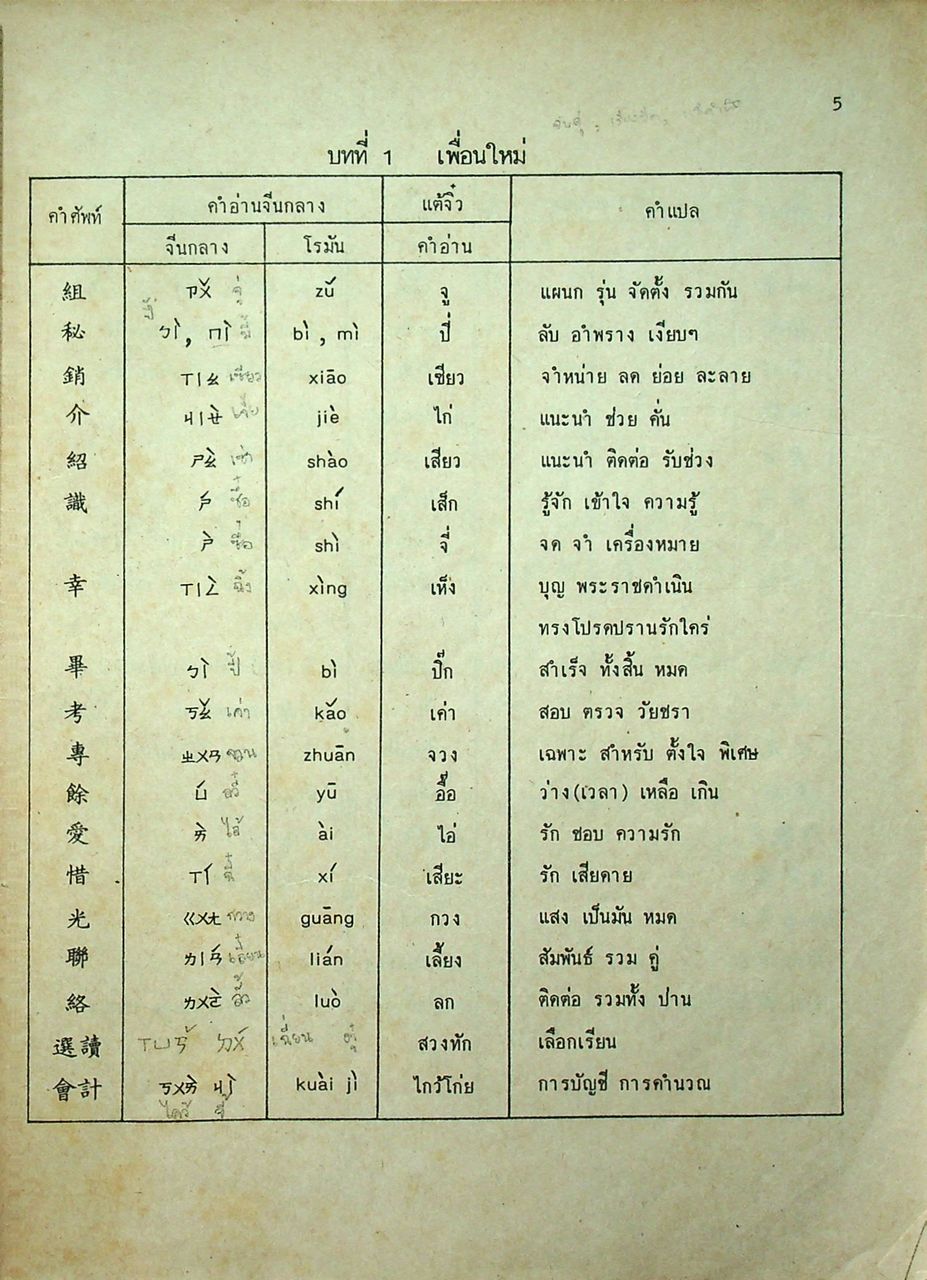 5
บทที่ 1 เพื่อนใหม่
คำศัพท์ คำอ่านจีนกลาง แต้จิ๋ว คำแปล
จีนกลาง โรมัน คำอ่าน
組 ㄗㄨˇ จู่ zǔ จู แผนก รุ่น จัดตั้ง รวมกัน
秘 ㄅㄧˋ, ㄇㄧˋ bì , mì ปี่ ลับ อำพราง เงียบๆ
銷 ㄒㄧㄠ เซียว xiāo เซียว จำหน่าย ลด ย่อย ละลาย
介 ㄐㄧㄝˋ jiè ไก่ แนะนำ ช่วย คั่น
紹 ㄕㄠˋ shào เสียว แนะนำ ติดต่อ รับช่วง
識 ㄕˊ shí เส็ก รู้จัก เข้าใจ ความรู้
ㄕˋ shì จี่ จด จำ เครื่องหมาย
幸 ㄒㄧㄥˋ xìng เห็ง บุญ พระราชดำเนิน
ทรงโปรดปรานรักใคร่
畢 ㄅㄧˋ ปี้ bì ปิ๊ก สำเร็จ ทั้งสิ้น หมด
考 ㄎㄠˇ เค่า kǎo เค่า สอบ ตรวจ วัยชรา
專 ㄓㄨㄢ จวน zhuān จวง เฉพาะ สำหรับ ตั้งใจ พิเศษ
餘 ㄩˊ yū อื๊อ ว่าง(เวลา) เหลือ เกิน
愛 ㄞˋ ไอ้ ài ไอ่ รัก ชอบ ความรัก
惜 ㄒㄧˊ xí เสียะ รัก เสียดาย
光 ㄍㄨㄤ กวาง guāng กวง แสง เป็นมัน หมด
聯 ㄌㄧㄢˊ lián เลี้ยง สัมพันธ์ รวม คู่
絡 ㄌㄨㄛˋ luò ลก ติดต่อ รวมทั้ง ปาน
選讀 ㄒㄩㄢˇ ㄉㄨˊ สวงทัก เลือกเรียน
會計 ㄎㄨㄞˋ ㄐㄧˋ kuài jì ไกว้โก่ย การบัญชี การคำนวณ